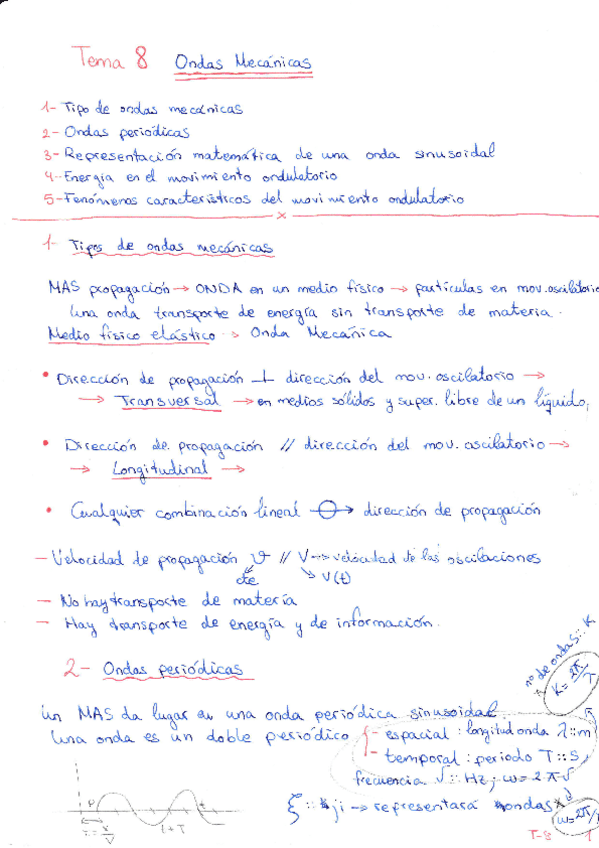 Tema 8 Ondas Mecánicas
1- Tipo de ondas mecánicas
2- Ondas periódicas
3- Representación matemática de una onda sinusoidal
4- Energía en el movimiento ondulatorio
5- Fenómenos característicos del movimiento ondulatorio
x
1- Tipos de ondas mecánicas
MAS propagación → ONDA en un medio físico → partículas en mov. oscilatorio
Una onda transporte de energía sin transporte de materia.
Medio físico elástico → Onda Mecánica
• Dirección de propagación ⊥ dirección del mov. oscilatorio →
→ Transversal → en medios sólidos y super. libre de un líquido;
• Dirección de propagación // dirección del mov. oscilatorio →
→ Longitudinal →
• Cualquier combinación lineal → dirección de propagación
- Velocidad de propagación v // V → velocidad de las oscilaciones
cte V(t)
- No hay transporte de materia
- Hay transporte de energía y de información.
nº de ondas :: K
K = 2π/
2- Ondas periódicas
Un MAS da lugar en una onda periódica sinusoidal
Una onda es un doble periódico - espacial : longitud onda λ :: m
- temporal : periodo T :: s,
frecuencia ν :: Hz ; ω = 2πν
P t
t+T
ξ :: ji → representará ondas
ω = 2π/
T-8 1